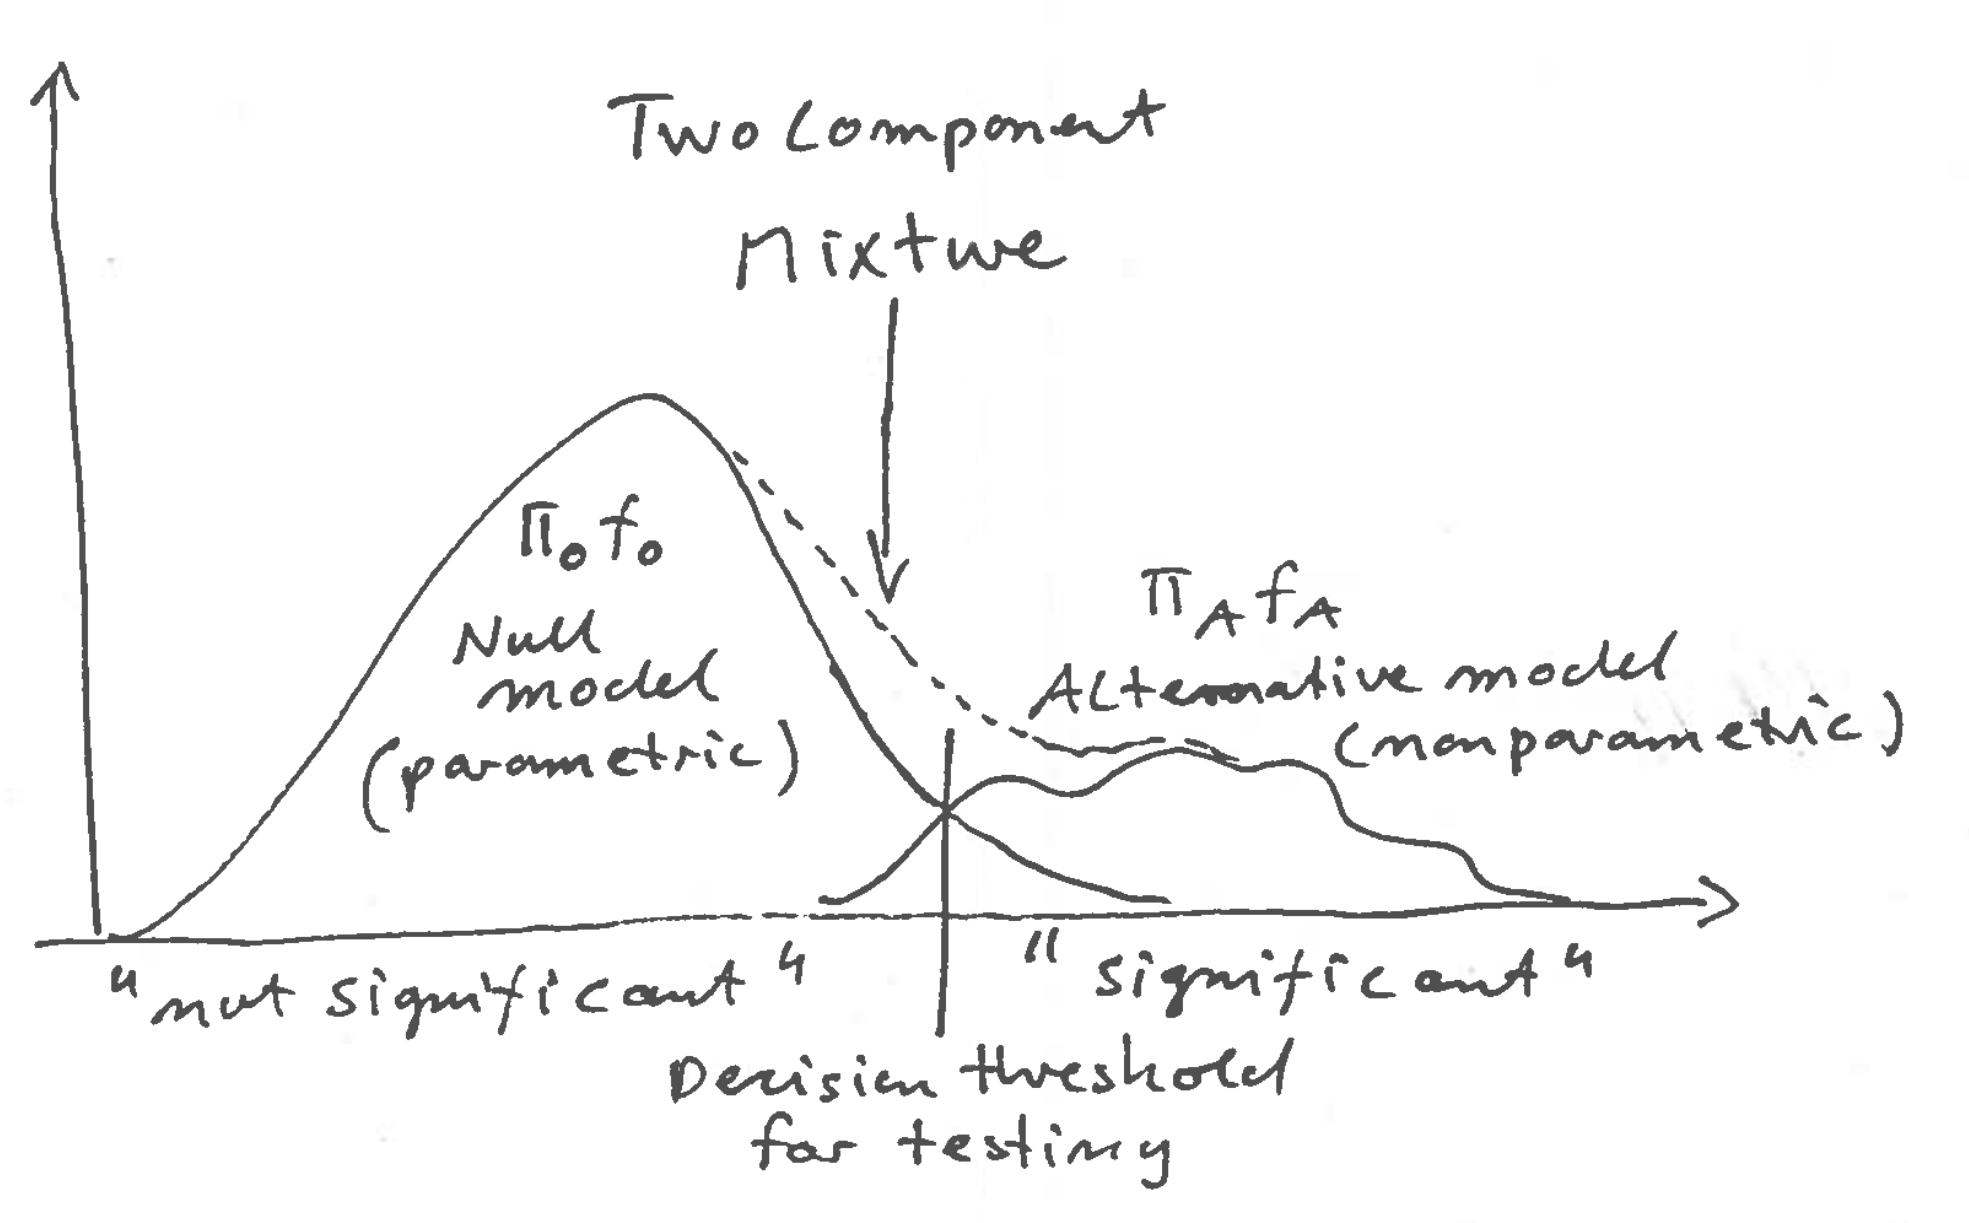 Two Component
Mixture
π₀ f₀
Null
model
(parametric)
π_A f_A
Alternative model
(nonparametric)
"not significant"
"significant"
Decision threshold
for testing